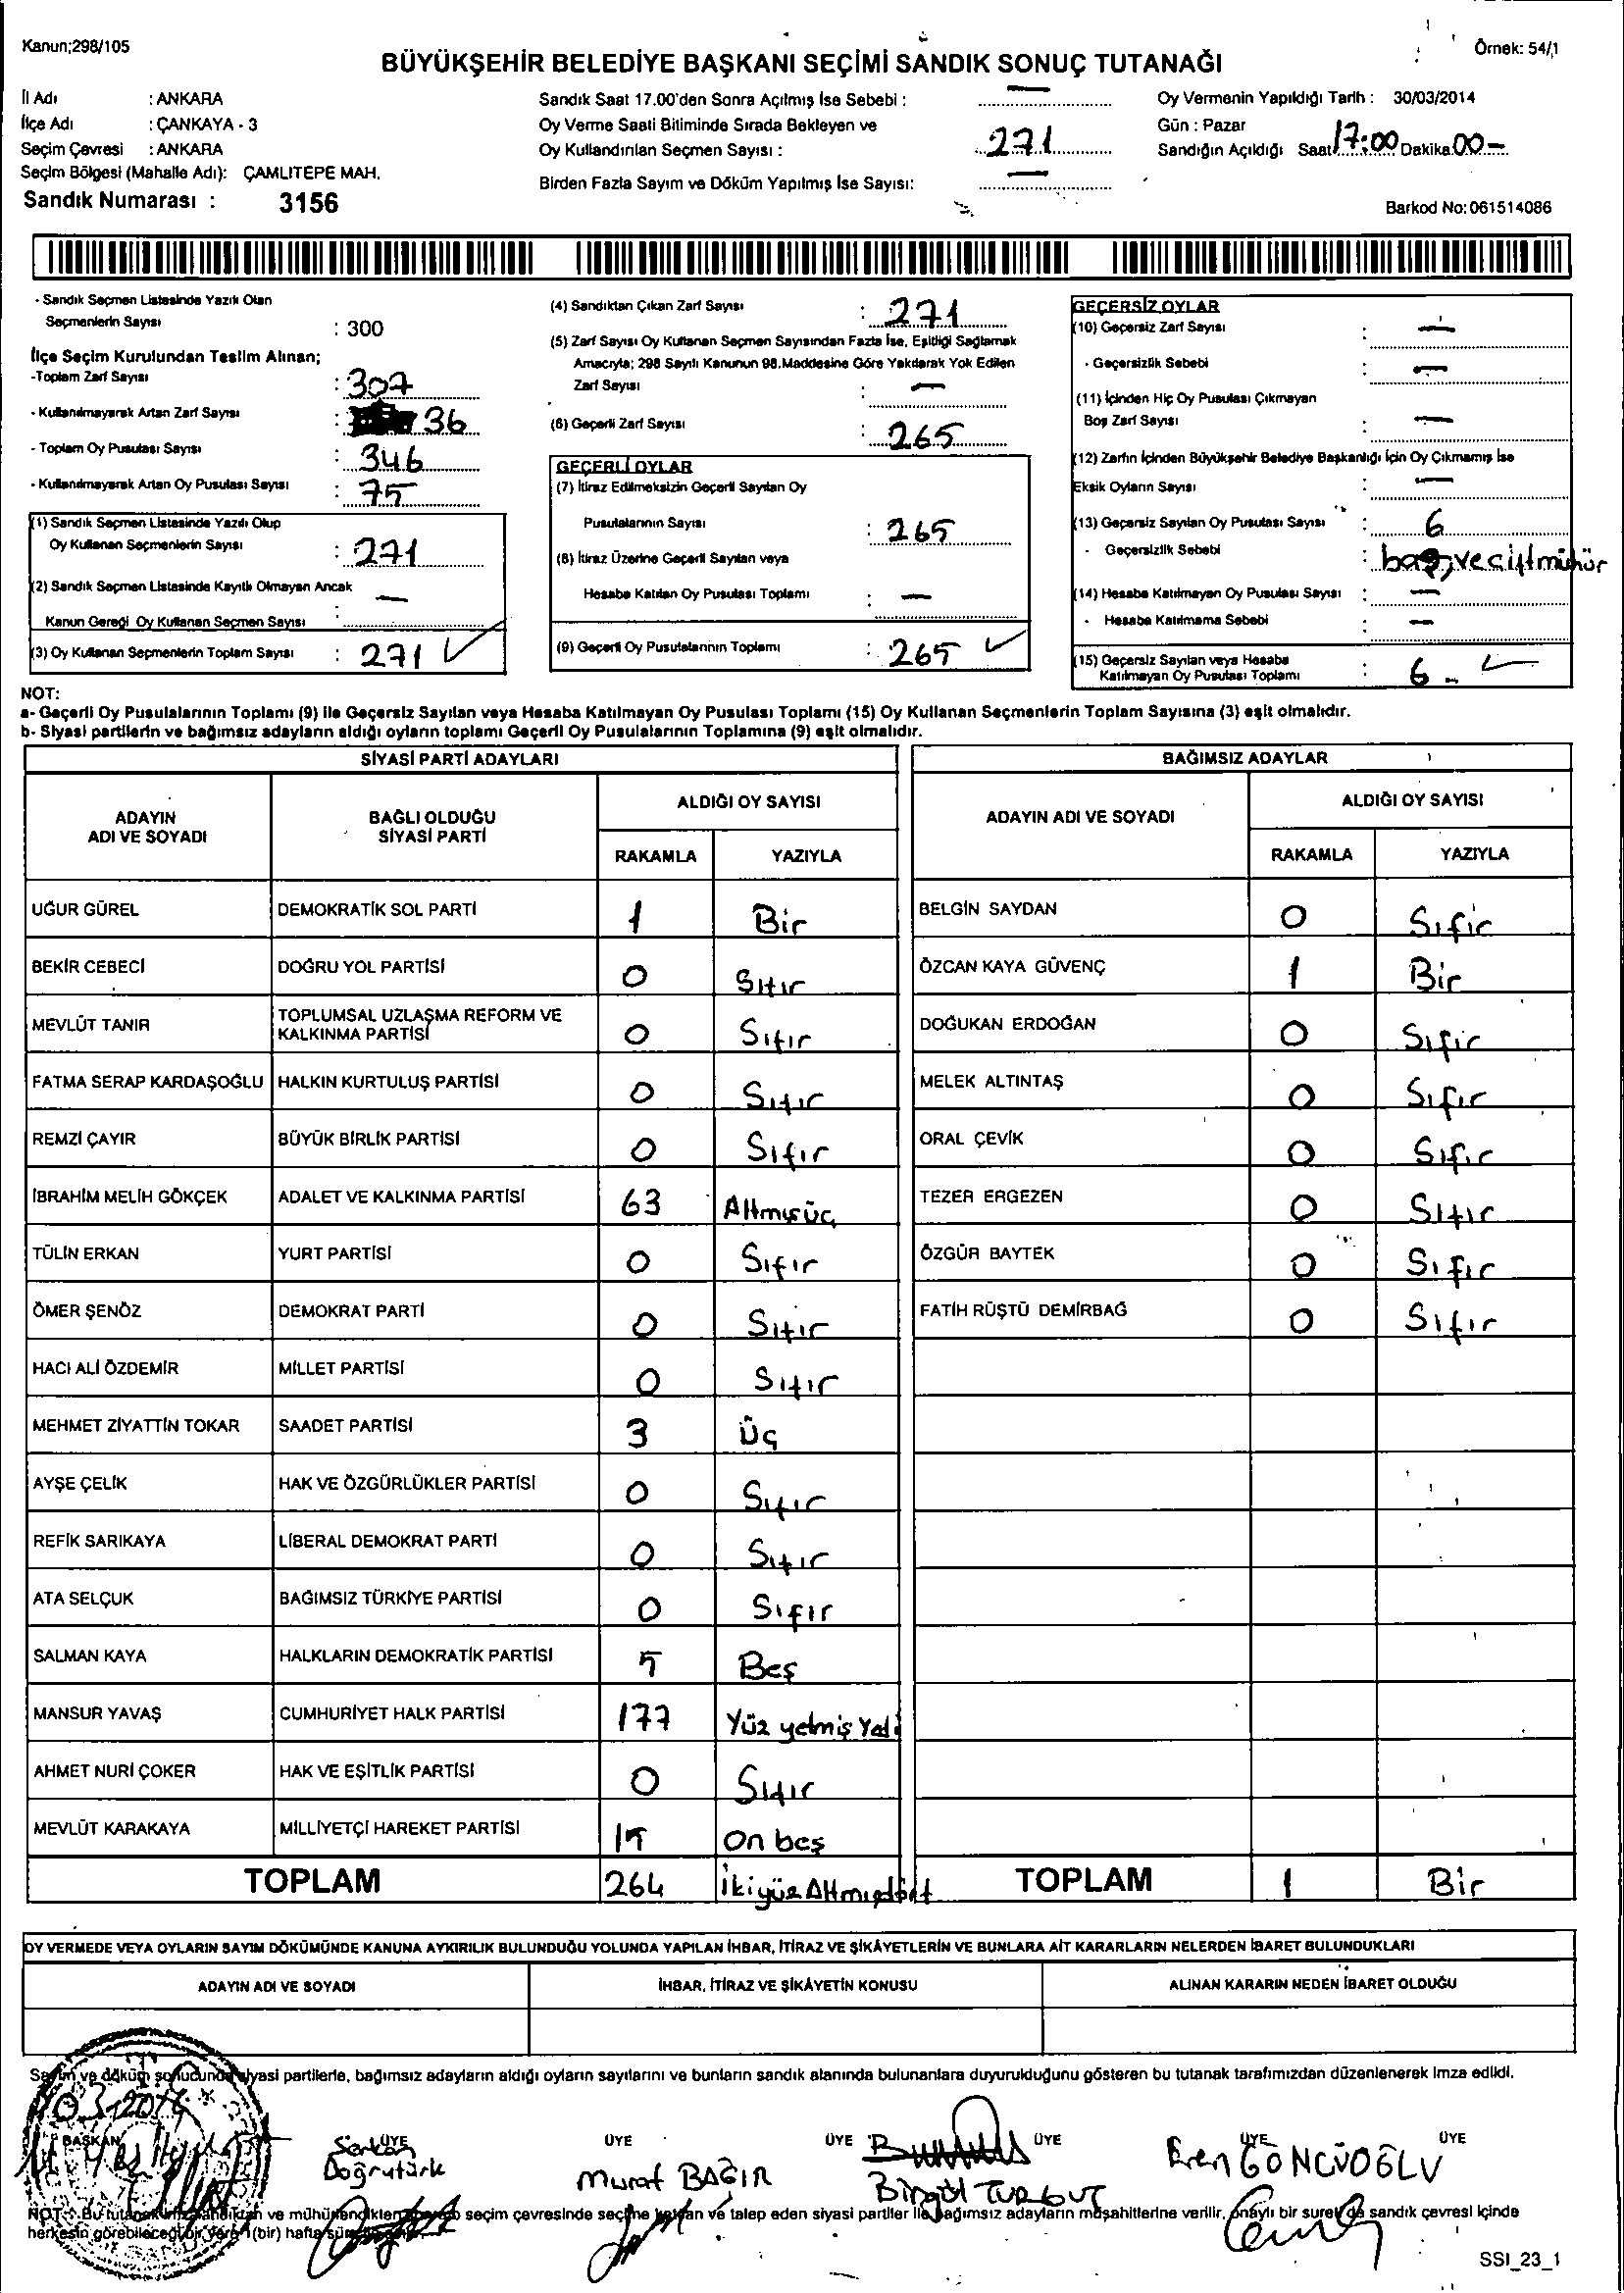 Kanun;298/105
Örnek: 54/1
BÜYÜKŞEHİR BELEDİYE BAŞKANI SEÇİMİ SANDIK SONUÇ TUTANAĞI
İl Adı : ANKARA
İlçe Adı : ÇANKAYA - 3
Seçim Çevresi : ANKARA
Seçim Bölgesi (Mahalle Adı): ÇAMLITEPE MAH.
Sandık Numarası : 3156
Sandık Saat 17.00'den Sonra Açılmış İse Sebebi : —
Oy Verme Saati Bitiminde Sırada Bekleyen ve
Oy Kullandırılan Seçmen Sayısı : 271
Birden Fazla Sayım ve Döküm Yapılmış İse Sayısı: —
Oy Vermenin Yapıldığı Tarih : 30/03/2014
Gün : Pazar
Sandığın Açıldığı Saat 17:00 Dakika 00-
Barkod No: 061514086
- Sandık Seçmen Listesinde Yazılı Olan
Seçmenlerin Sayısı : 300
İlçe Seçim Kurulundan Teslim Alınan;
-Toplam Zarf Sayısı : 307
- Kullanılmayarak Artan Zarf Sayısı : 36
- Toplam Oy Pusulası Sayısı : 346
- Kullanılmayarak Artan Oy Pusulası Sayısı : 75
(1) Sandık Seçmen Listesinde Yazılı Olup
Oy Kullanan Seçmenlerin Sayısı : 271
(2) Sandık Seçmen Listesinde Kayıtlı Olmayan Ancak
Kanun Gereği Oy Kullanan Seçmen Sayısı : —
(3) Oy Kullanan Seçmenlerin Toplam Sayısı : 271
(4) Sandıktan Çıkan Zarf Sayısı : 271
(5) Zarf Sayısı Oy Kullanan Seçmen Sayısından Fazla İse, Eşitliği Sağlamak
Amacıyla; 298 Sayılı Kanunun 98.Maddesine Göre Yakılarak Yok Edilen
Zarf Sayısı : —
(6) Geçerli Zarf Sayısı : 265
GEÇERLİ OYLAR
(7) İtiraz Edilmeksizin Geçerli Sayılan Oy
Pusulalarının Sayısı : 265
(8) İtiraz Üzerine Geçerli Sayılan veya
Hesaba Katılan Oy Pusulası Toplamı : —
(9) Geçerli Oy Pusulalarının Toplamı : 265
GEÇERSİZ OYLAR
(10) Geçersiz Zarf Sayısı : —
- Geçersizlik Sebebi : —
(11) İçinden Hiç Oy Pusulası Çıkmayan
Boş Zarf Sayısı : —
(12) Zarfın İçinden Büyükşehir Belediye Başkanlığı İçin Oy Çıkmamış İse
Eksik Oyların Sayısı : —
(13) Geçersiz Sayılan Oy Pusulası Sayısı : 6
- Geçersizlik Sebebi : boş, ve çift mühür
(14) Hesaba Katılmayan Oy Pusulası Sayısı : —
- Hesaba Katılmama Sebebi : —
(15) Geçersiz Sayılan veya Hesaba
Katılmayan Oy Pusulası Toplamı : 6 -
NOT:
a- Geçerli Oy Pusulalarının Toplamı (9) ile Geçersiz Sayılan veya Hesaba Katılmayan Oy Pusulası Toplamı (15) Oy Kullanan Seçmenlerin Toplam Sayısına (3) eşit olmalıdır.
b- Siyasi partilerin ve bağımsız adayların aldığı oyların toplamı Geçerli Oy Pusulalarının Toplamına (9) eşit olmalıdır.
SİYASİ PARTİ ADAYLARI
ADAYIN ADI VE SOYADI BAĞLI OLDUĞU SİYASİ PARTİ ALDIĞI OY SAYISI
RAKAMLA YAZIYLA
UĞUR GÜREL DEMOKRATİK SOL PARTİ 1 Bir
BEKİR CEBECİ DOĞRU YOL PARTİSİ 0 Sıfır
MEVLÜT TANIR TOPLUMSAL UZLAŞMA REFORM VE KALKINMA PARTİSİ 0 Sıfır
FATMA SERAP KARDAŞOĞLU HALKIN KURTULUŞ PARTİSİ 0 Sıfır
REMZİ ÇAYIR BÜYÜK BİRLİK PARTİSİ 0 Sıfır
İBRAHİM MELİH GÖKÇEK ADALET VE KALKINMA PARTİSİ 63 Altmışüç
TÜLİN ERKAN YURT PARTİSİ 0 Sıfır
ÖMER ŞENÖZ DEMOKRAT PARTİ 0 Sıfır
HACI ALİ ÖZDEMİR MİLLET PARTİSİ 0 Sıfır
MEHMET ZİYATTİN TOKAR SAADET PARTİSİ 3 Üç
AYŞE ÇELİK HAK VE ÖZGÜRLÜKLER PARTİSİ 0 Sıfır
REFİK SARIKAYA LİBERAL DEMOKRAT PARTİ 0 Sıfır
ATA SELÇUK BAĞIMSIZ TÜRKİYE PARTİSİ 0 Sıfır
SALMAN KAYA HALKLARIN DEMOKRATİK PARTİSİ 5 Beş
MANSUR YAVAŞ CUMHURİYET HALK PARTİSİ 177 Yüz yetmiş Yedi
AHMET NURİ ÇOKER HAK VE EŞİTLİK PARTİSİ 0 Sıfır
MEVLÜT KARAKAYA MİLLİYETÇİ HAREKET PARTİSİ 15 On beş
TOPLAM 264 İkiyüz Altmışdört
BAĞIMSIZ ADAYLAR
ADAYIN ADI VE SOYADI ALDIĞI OY SAYISI
RAKAMLA YAZIYLA
BELGİN SAYDAN 0 Sıfır
ÖZCAN KAYA GÜVENÇ 1 Bir
DOĞUKAN ERDOĞAN 0 Sıfır
MELEK ALTINTAŞ 0 Sıfır
ORAL ÇEVİK 0 Sıfır
TEZER ERGEZEN 0 Sıfır
ÖZGÜR BAYTEK 0 Sıfır
FATİH RÜŞTÜ DEMİRBAĞ 0 Sıfır
TOPLAM 1 Bir
OY VERMEDE VEYA OYLARIN SAYIM DÖKÜMÜNDE KANUNA AYKIRILIK BULUNDUĞU YOLUNDA YAPILAN İHBAR, İTİRAZ VE ŞİKÂYETLERİN VE BUNLARA AİT KARARLARIN NELERDEN İBARET BULUNDUKLARI
ADAYIN ADI VE SOYADI İHBAR, İTİRAZ VE ŞİKÂYETİN KONUSU ALINAN KARARIN NEDEN İBARET OLDUĞU
Sayım ve döküm sonucunda siyasi partilerle, bağımsız adayların aldığı oyların sayılarını ve bunların sandık alanında bulunanlara duyurulduğunu gösteren bu tutanak tarafımızdan düzenlenerek imza edildi.
BAŞKAN ÜYE ÜYE ÜYE ÜYE ÜYE ÜYE
Serkan Doğrutürk
Murat BAĞIR
Birgül TURGUT
Eren GÖNCÜOĞLU
NOT : Bu tutanak ve mühürlendikten seçim çevresinde seçime katılan ve talep eden siyasi partiler ile bağımsız adayların müşahitlerine verilir, onaylı bir sureti de sandık çevresi içinde
herkesin görebileceği bir yere 1(bir) hafta
SSI_23_1